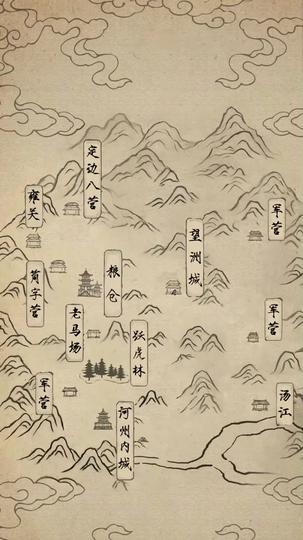 定边八营
雍关
军营
望洲城
粮仓
前字营
老马场
军营
跃虎林
军营
汤江
河州内城